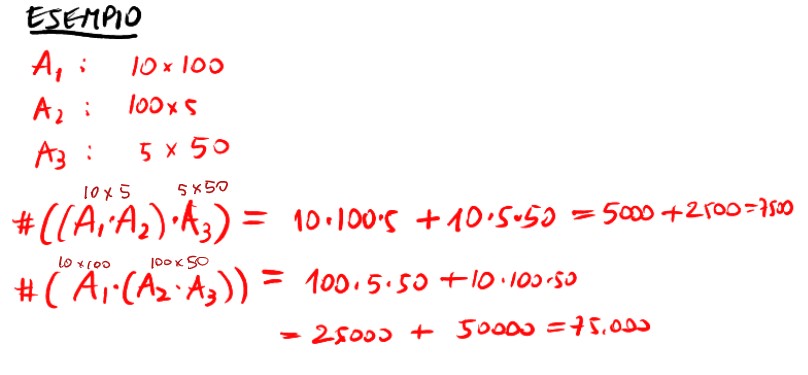 ESEMPIO
A₁ : 10 × 100
A₂ : 100 × 5
A₃ : 5 × 50
10 × 5 5 × 50
#((A₁·A₂)·A₃) = 10·100·5 + 10·5·50 = 5000 + 2500 = 7500
10 × 100 100 × 50
#(A₁·(A₂·A₃)) = 100·5·50 + 10·100·50
= 25000 + 50000 = 75.000